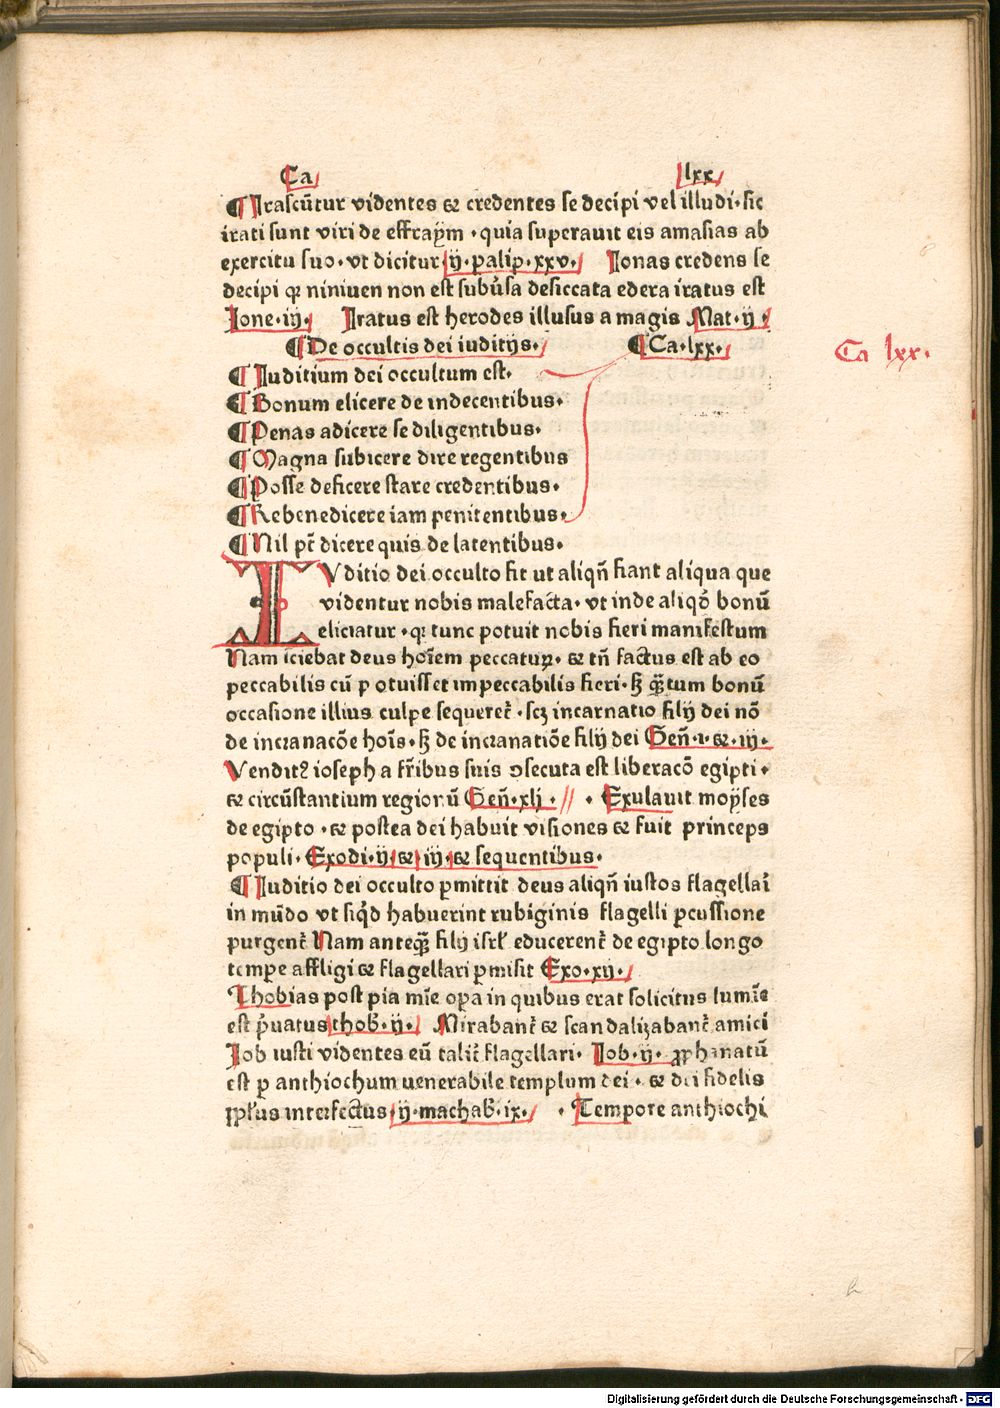 Ca lxx
¶ Irascūtur videntes ⁊ credentes se decipi vel illudi · sic
irati sunt viri de effraym · quia superauit eis amasias ab
exercitu suo · vt dicitur ij · palip · xxv · Ionas credens se
decipi qꝛ niniuen non est subuͥsa desiccata edera iratus est
Ione · iij · Iratus est herodes illusus a magis Mat · ij ·
¶ De occultis dei iuditijs · ¶ Ca · lxx ·
Ca lxx ·
¶ Iuditium dei occultum est ·
¶ Bonum elicere de indecentibus ·
¶ Penas adicere se diligentibus ·
¶ Magna subicere dire regentibus
¶ Posse deficere stare credentibus ·
¶ Rebenedicere iam penitentibus ·
¶ Nil pt̄ dicere quis de latentibus ·
IVditio dei occulto fit ut aliqn̄ fiant aliqua que
videntur nobis malefacta · vt inde aliqd̄ bonū
eliciatur · qꝛ tunc potuit nobis fieri manifestum
Nam sciebat deus hoīem peccatuꝝ · ⁊ tn̄ factus est ab eo
peccabilis cū potuisset impeccabilis fieri · sꝫ qꝫtum bonū
occasione illius culpe sequeret̄ · scꝫ incarnatio filij dei nō
de incranacōe hoīs · sꝫ de incranatiōe filij dei Gen̄ · i · ⁊ · iij ·
Vendit⁹ ioseph a fr̄ibus suis ꝯsecuta est liberacō egipti ·
⁊ circūstantium regionū Gen̄ · xlj · · Exulauit moyses
de egipto · ⁊ postea dei habuit visiones ⁊ fuit princeps
populi · Exodi · ij ⁊ iij · ⁊ sequentibus ·
¶ Iuditio dei occulto ꝑmittit deus aliqn̄ iustos flagellari
in mūdo vt siqͥd habuerint rubiginis flagelli ꝑcussione
purgent̄ Nam anteqꝫ filij isrl̄ educerent̄ de egipto longo
tempe affligi ⁊ flagellari ꝑmisit Exo · xij ·
Thobias post pia mīe oꝑa in quibus erat solicitus lumīe
est pͥuatus thob̄ · ij · Mirabant̄ ⁊ scandalizabant̄ amici
Iob iusti videntes eū talit̄ flagellari · Iob · ij · ꝓphanatū
est ꝑ anthiochum uenerabile templum dei · ⁊ dei fidelis
ppl̄us interfectus ij · machab̄ · ix · · Tempore anthiochi
Digitalisierung gefördert durch die Deutsche Forschungsgemeinschaft - DFG